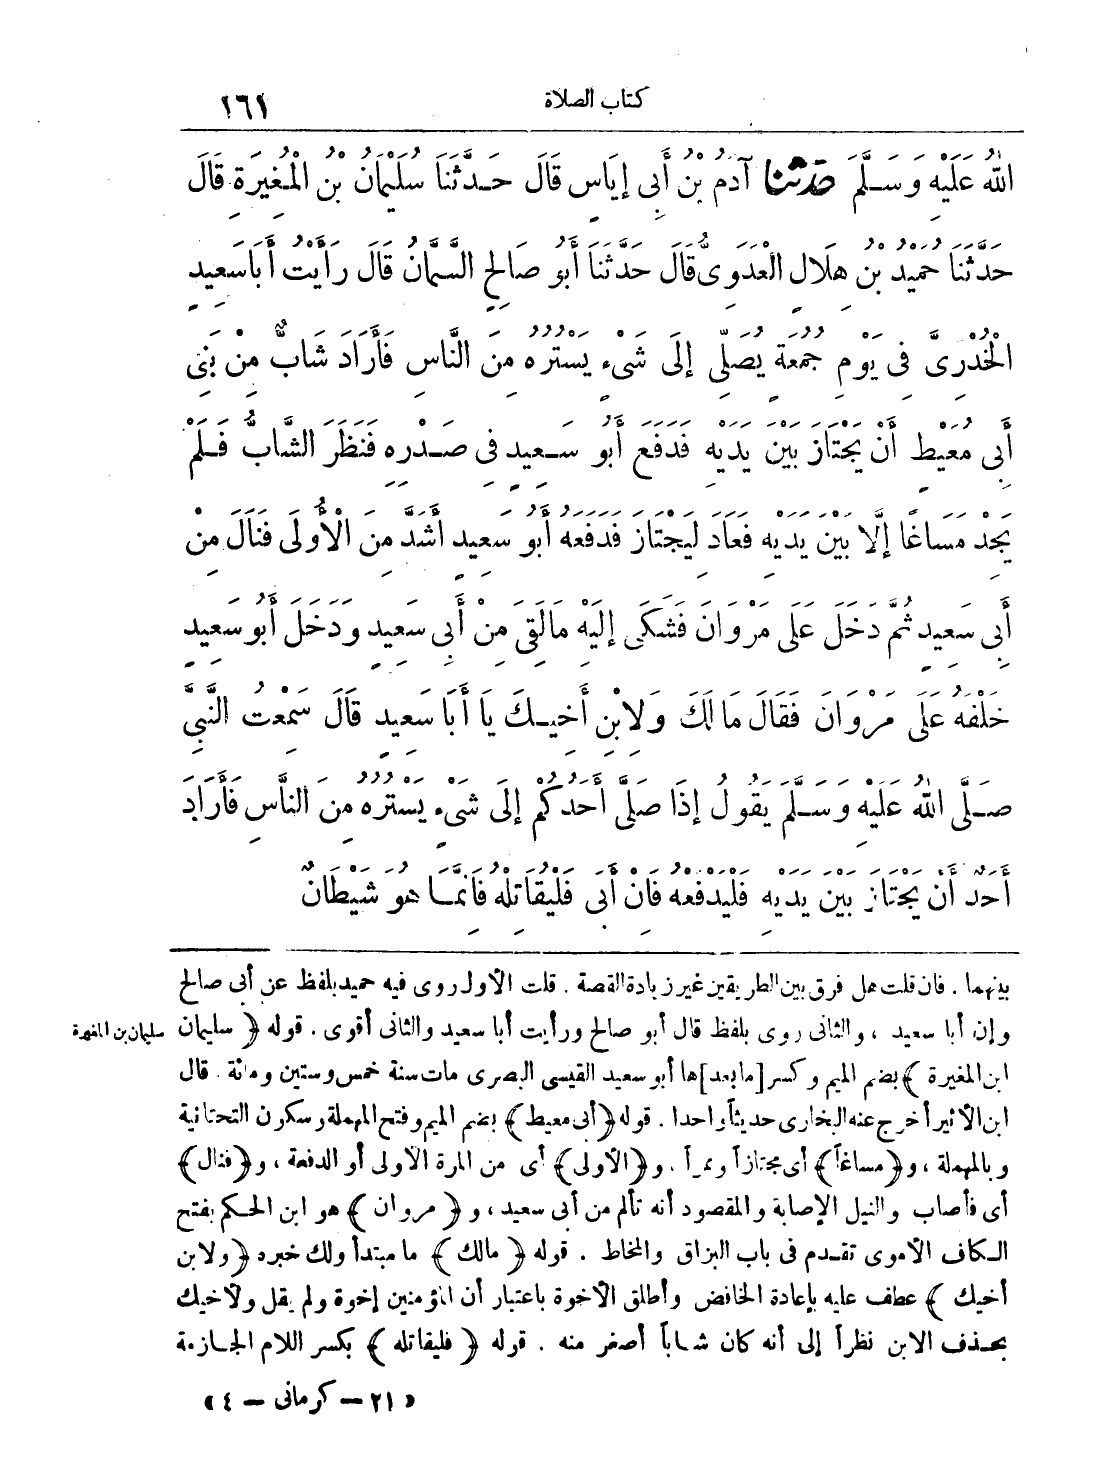 كتاب الصلاة ١٦١
اللهُ عَلَيْهِ وَسَلَّمَ حَدَّثَنَا آدَمُ بْنُ أَبِى إِيَاسٍ قَالَ حَدَّثَنَا سُلَيْمَانُ بْنُ الْمُغِيرَةِ قَالَ
حَدَّثَنَا حُمَيْدُ بْنُ هِلَالٍ الْعَدَوِىُّ قَالَ حَدَّثَنَا أَبُو صَالِحٍ السَّمَّانُ قَالَ رَأَيْتُ أَبَا سَعِيدٍ
الْخُدْرِىَّ فِى يَوْمِ جُمُعَةٍ يُصَلِّى إِلَى شَىْءٍ يَسْتُرُهُ مِنَ النَّاسِ فَأَرَادَ شَابٌّ مِنْ بَنِى
أَبِى مُعَيْطٍ أَنْ يَجْتَازَ بَيْنَ يَدَيْهِ فَدَفَعَ أَبُو سَعِيدٍ فِى صَدْرِهِ فَنَظَرَ الشَّابُّ فَلَمْ
يَجِدْ مَسَاغًا إِلَّا بَيْنَ يَدَيْهِ فَعَادَ لِيَجْتَازَ فَدَفَعَهُ أَبُو سَعِيدٍ أَشَدَّ مِنَ الْأُولَى فَنَالَ مِنْ
أَبِى سَعِيدٍ ثُمَّ دَخَلَ عَلَى مَرْوَانَ فَشَكَى إِلَيْهِ مَا لَقِىَ مِنْ أَبِى سَعِيدٍ وَدَخَلَ أَبُو سَعِيدٍ
خَلْفَهُ عَلَى مَرْوَانَ فَقَالَ مَا لَكَ وَلِابْنِ أَخِيكَ يَا أَبَا سَعِيدٍ قَالَ سَمِعْتُ النَّبِىَّ
صَلَّى اللهُ عَلَيْهِ وَسَلَّمَ يَقُولُ إِذَا صَلَّى أَحَدُكُمْ إِلَى شَىْءٍ يَسْتُرُهُ مِنَ النَّاسِ فَأَرَادَ
أَحَدٌ أَنْ يَجْتَازَ بَيْنَ يَدَيْهِ فَلْيَدْفَعْهُ فَإِنْ أَبَى فَلْيُقَاتِلْهُ فَإِنَّمَا هُوَ شَيْطَانٌ
بينهما . فان قلت هل فرق بين الطريقين غير زيادة القصة . قلت الأول روى فيه حميد بلفظ عن أبى صالح
وإن أبا سعيد ، والثانى روى بلفظ قال أبو صالح ورأيت أبا سعيد والثانى أقوى . قوله ﴿ سليمان
سليمان بن المغيرة
ابن المغيرة ﴾ بضم الميم وكسر [ما بعد] ها أبو سعيد القيسى البصرى مات سنة خمس وستين ومائة . قال
ابن الأثير أخرج عنه البخارى حديثاً واحدا . قوله ﴿ أبى معيط ﴾ بضم الميم وفتح المهملة وسكون التحتانية
وبالمهملة ، و﴿ مساغاً ﴾ أى مجتازاً وممراً . و﴿ الأولى ﴾ أى من المرة الأولى أو الدفعة ، و﴿ فنال ﴾
أى فأصاب والنيل الإصابة والمقصود أنه تألم من أبى سعيد ، و ﴿ مروان ﴾ هو ابن الحكم بفتح
الكاف الأموى تقدم فى باب البزاق والمخاط . قوله ﴿ مالك ﴾ ما مبتدأ ولك خبره ﴿ ولابن
أخيك ﴾ عطف عليه بإعادة الخافض وأطلق الأخوة باعتبار أن المؤمنين إخوة ولم يقل ولأخيك
بحذف الابن نظراً إلى أنه كان شاباً أصغر منه . قوله ﴿ فليقاتله ﴾ بكسر اللام الجازمة
« ٢١ — كرمانى — ٤ »